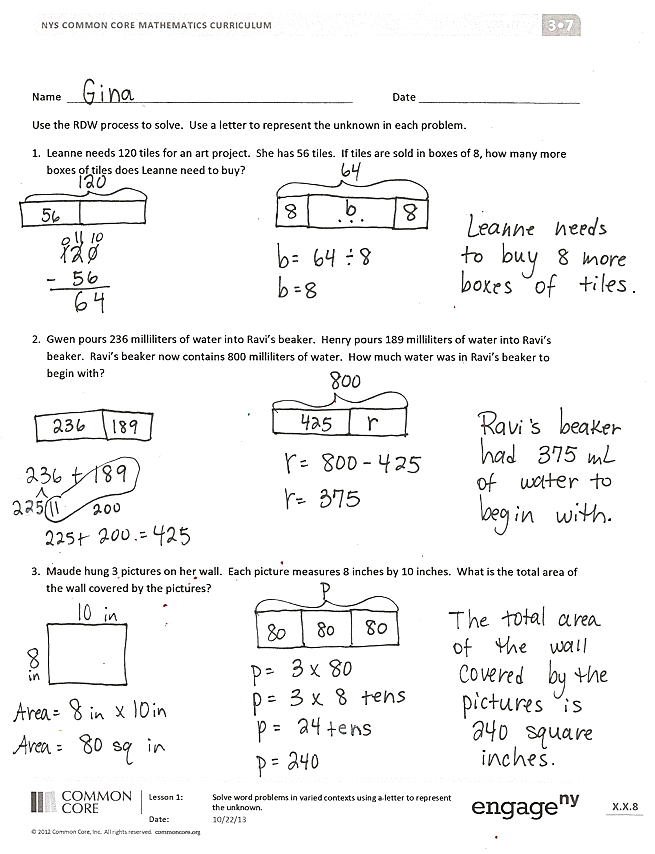 NYS COMMON CORE MATHEMATICS CURRICULUM
3•7
Name Gina Date
Use the RDW process to solve. Use a letter to represent the unknown in each problem.
1. Leanne needs 120 tiles for an art project. She has 56 tiles. If tiles are sold in boxes of 8, how many more
boxes of tiles does Leanne need to buy?
120
56
0 11 10
120
- 56
64
64
8 b... 8
b= 64 ÷ 8
b=8
Leanne needs
to buy 8 more
boxes of tiles.
2. Gwen pours 236 milliliters of water into Ravi's beaker. Henry pours 189 milliliters of water into Ravi's
beaker. Ravi's beaker now contains 800 milliliters of water. How much water was in Ravi's beaker to
begin with?
236 189
236 + 189
225 11 200
225+ 200.=425
800
425 r
r= 800-425
r= 375
Ravi's beaker
had 375 mL
of water to
begin with.
3. Maude hung 3 pictures on her wall. Each picture measures 8 inches by 10 inches. What is the total area of
the wall covered by the pictures?
10 in
8
in
Area= 8 in x 10in
Area= 80 sq in
P
80 80 80
p= 3 x 80
p= 3 x 8 tens
p= 24 tens
p= 240
The total area
of the wall
covered by the
pictures is
240 square
inches.
COMMON
CORE
Lesson 1:
Date:
Solve word problems in varied contexts using a letter to represent
the unknown.
10/22/13
engage ny
X.X.8
© 2012 Common Core, Inc. All rights reserved. commoncore.org